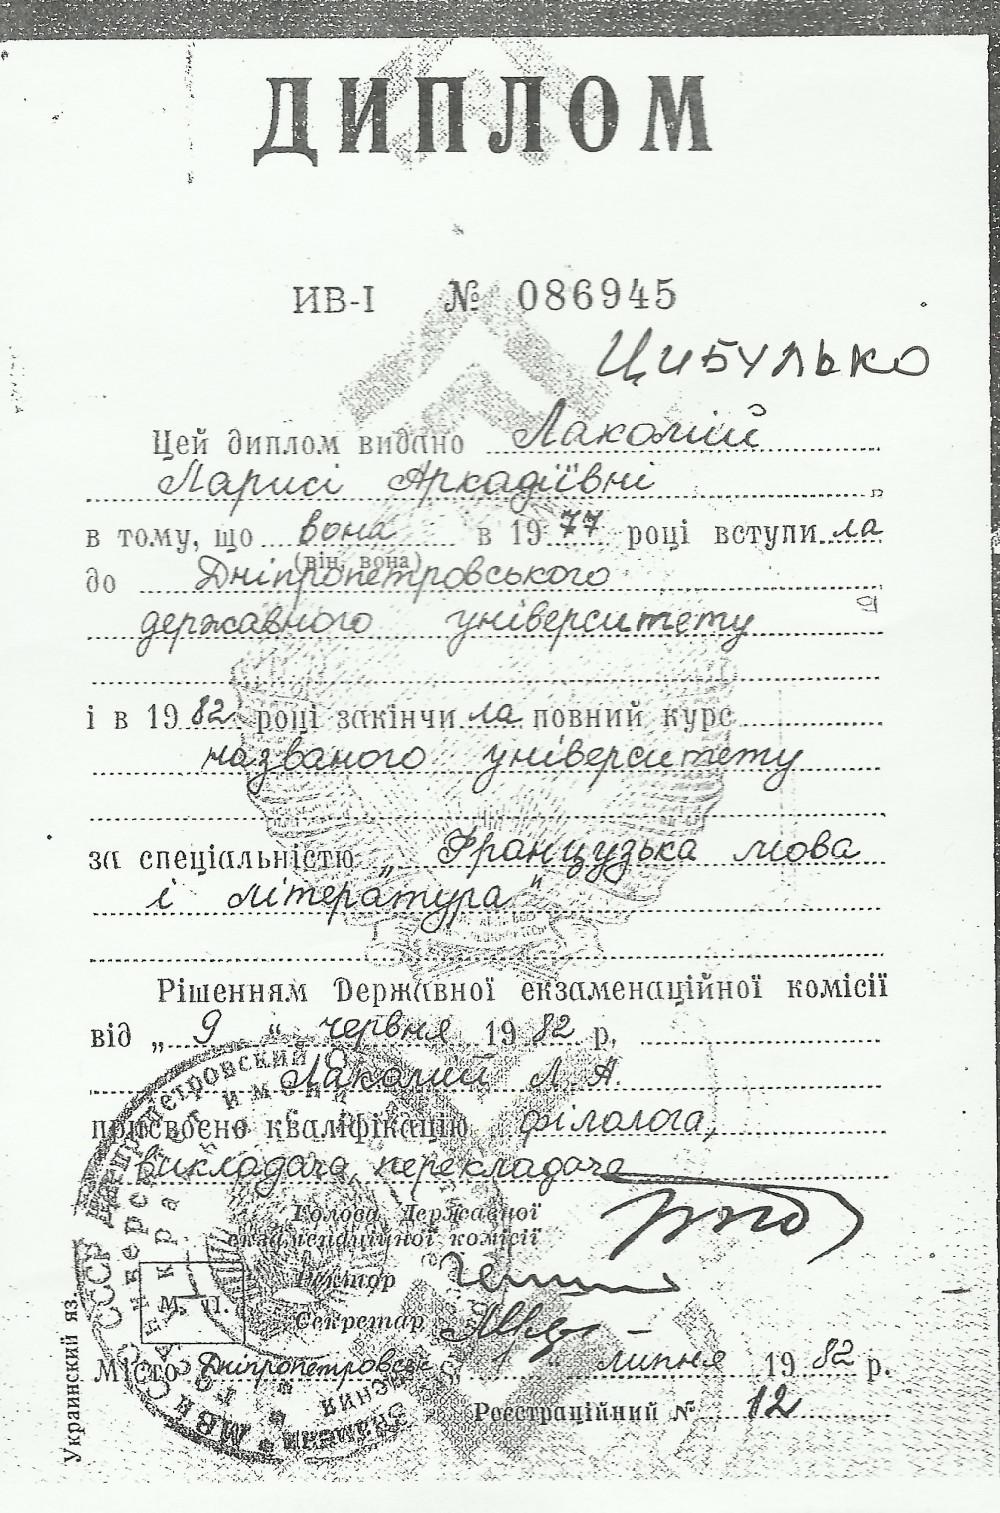 ДИПЛОМ
ИВ-I № 086945
Цибулько
Цей диплом видано Лаколiй
Ларисі Аркадіївні
в тому, що вона в 1977 році вступила
(він, вона)
до Дніпропетровського
державного університету
і в 1982 році закінчила повний курс
названого університету
за спеціальністю „Французька мова
і література"
Рішенням Державної екзаменаційної комісії
від „9" червня 1982 р.
Лаколiй Л. А.
присвоєно кваліфікацію філолога,
викладача, перекладача
Голова Державної
екзаменаційної комісії
Ректор
Секретар
М. П.
Місто Дніпропетровськ „1" липня 1982 р.
Реєстраційний № 12
Украинский яз.